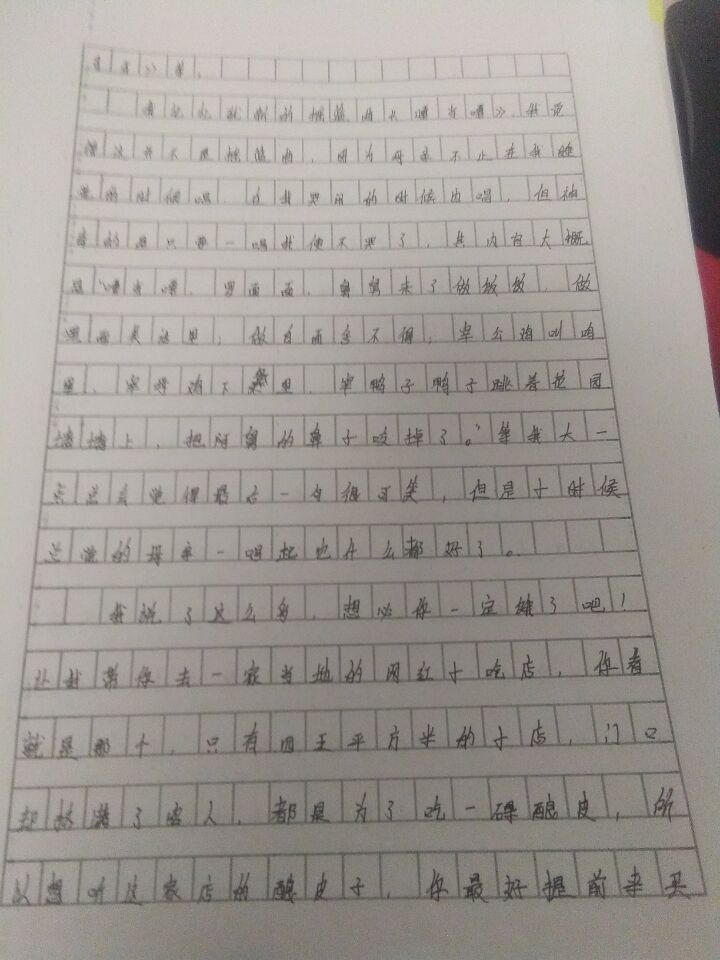 唱起她就的摇篮曲《嘈当嘈》，我说
这并不是摇篮曲，因为母亲不止在我睡
觉的时候唱，在我哭闹的时候也唱，但神
奇的是只要一唱我便不哭了，其内容大概
是"嘈当嘈，罗面面，舅舅来了做饭饭，做
黑面美，做白面舍不得，宰公鸡叫鸣
里，宰母鸡下蛋里，宰鸭子鸭子跳着花园
墙墙上，把阿舅的鼻子咬掉了。"等我大一
点总会觉得最后一句很可笑，但是小时候
总觉的母亲一唱起也什么都好了。
我说了这么多，想必你一定馋了吧！
让我带你去一家当地的网红小吃店，你看
就是那个，只有四五平方米的小店，门口
却挤满了客人，都是为了吃一碟酿皮，所
以想吃这家店的酿皮子，你最好提前来买